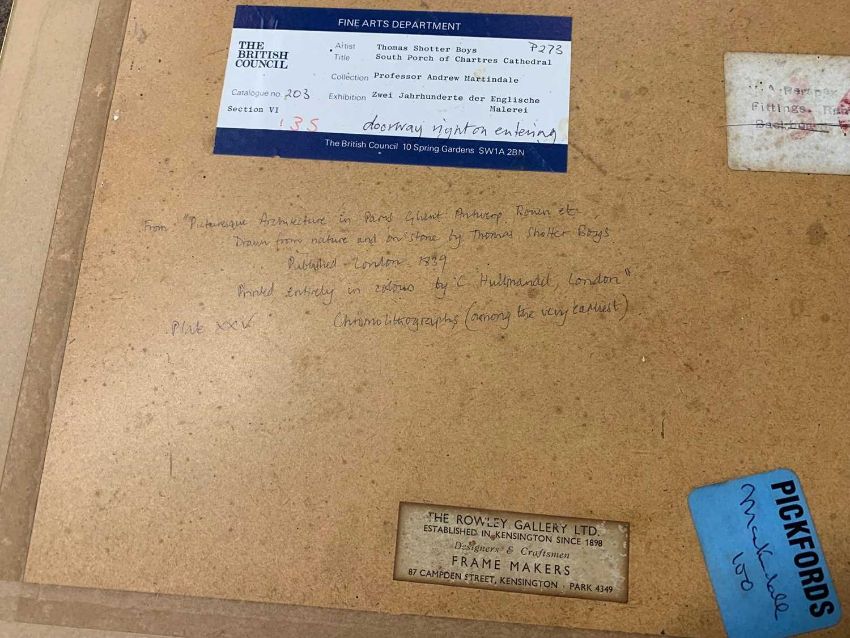 FINE ARTS DEPARTMENT
THE BRITISH COUNCIL
Artist Thomas Shotter Boys P273
Title South Porch of Chartres Cathedral
Collection Professor Andrew Martindale
Catalogue no. 203 Exhibition Zwei Jahrhunderte der Englische
Section VI Malerei
135 doorway right on entering
The British Council 10 Spring Gardens SW1A 2BN
Fittings.
From "Picturesque Architecture in Paris Ghent Antwerp Rouen etc.
Drawn from nature and on stone by Thomas Shotter Boys
Published London 1839
Printed entirely in colour by C. Hullmandel, London"
Plate XXV Chromolithographs (among the very earliest)
THE ROWLEY GALLERY LTD.
ESTABLISHED IN KENSINGTON SINCE 1898
Designers & Craftsmen
FRAME MAKERS
87 CAMPDEN STREET, KENSINGTON · PARK 4349
PICKFORDS
Martindale
100